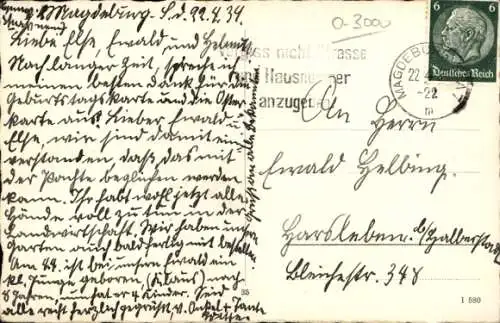 Magdeburg S. d. 22.4.34.
Liebe Else, Ewald und Helmut
Nach langer Zeit, spreche
meinen besten Dank für die
Geburtstagskarte und die Oster
karte aus. Lieber Ewald u.
Else, wir sind damit ein
verstanden, daß das mit
der Pachte beglichen werden
kann. Ihr habt wohl jetzt alle
Hände voll zu tun in der
Landwirtschaft. Wir haben unsern
Garten auch bald fertig mit bestellen.
Am 4.4. ist bei unsern Ewald ein
kl. Junge geboren, (Klaus) nach
8 Jahren, nun hat er 4 Kinder. Seid
alle recht herzlich gegrüßt v. Onkel & Tante
a 3000
Vergiss nicht Strasse
und Hausnummer
anzugeben
MAGDEBURG
22.4.
-22
m
6 6
Deutsches Reich
An Herrn
Ewald Helbing.
Harsleben. b/Halberstadt
Bleichestr. 348
35
I 880